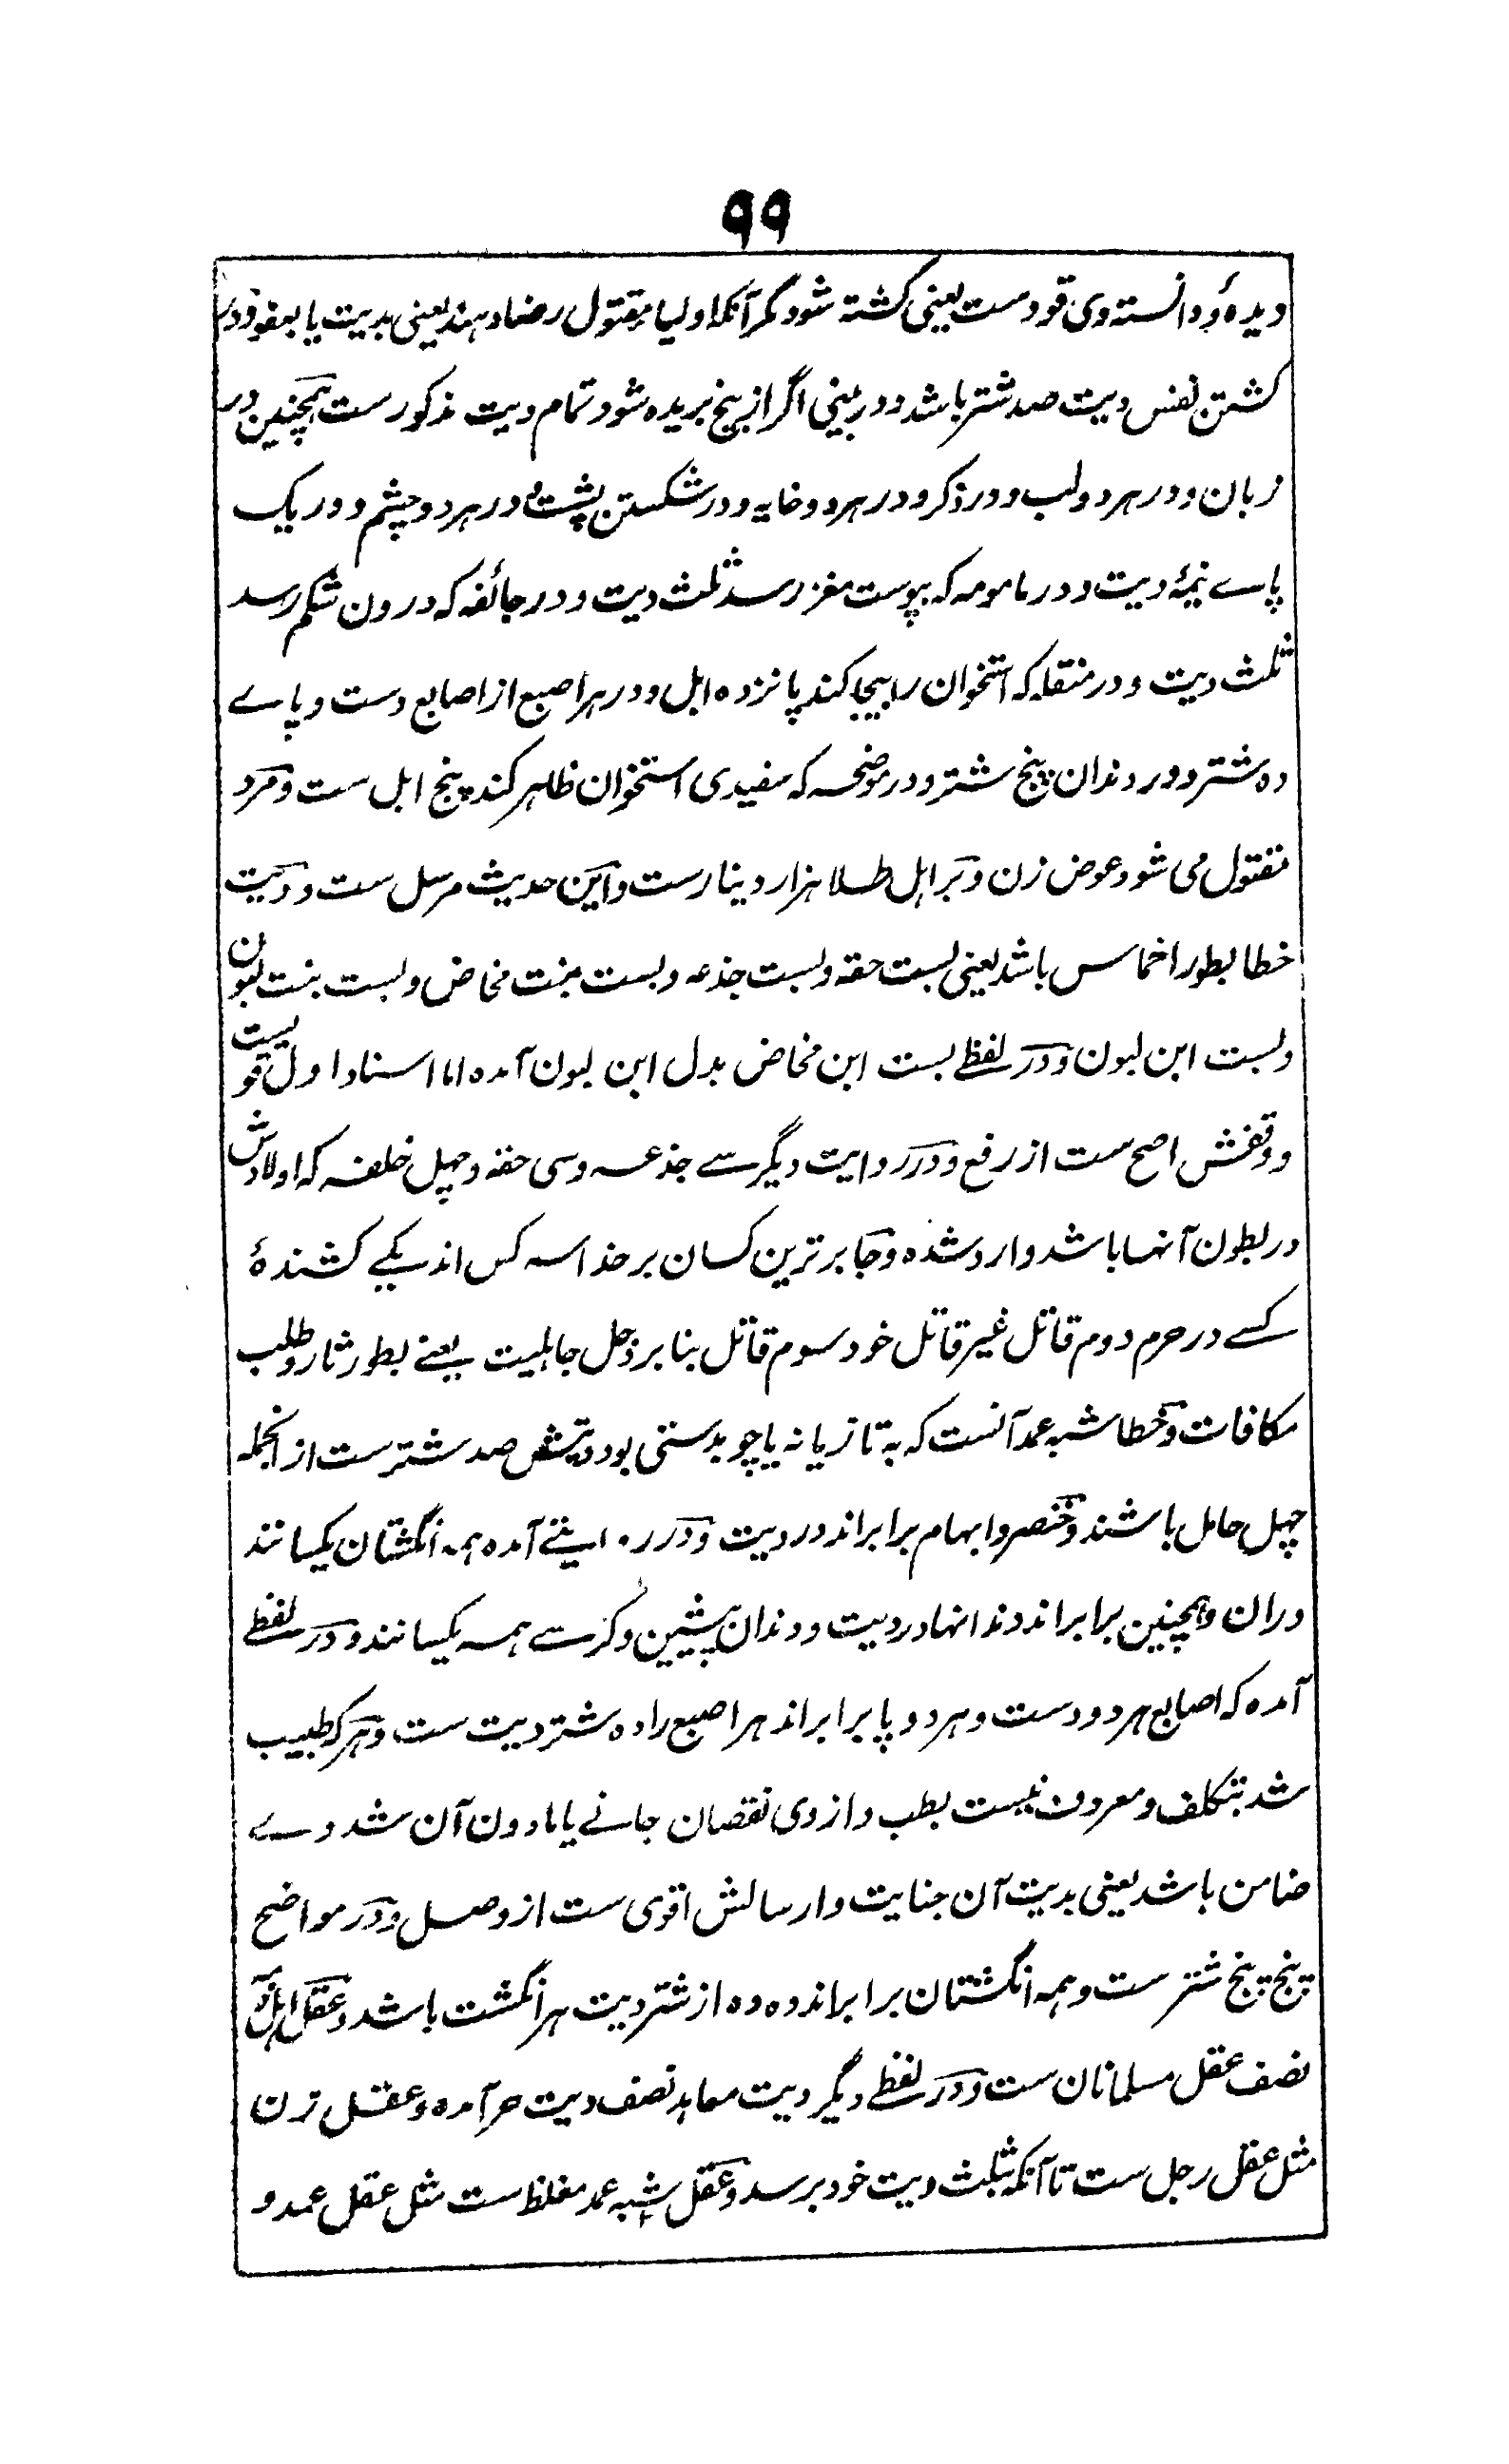 ۹۹
دیده و دانسته وی قودست یعنی کشته شود مگر آنکه اولیاء مقتول رضا دهند یعنی بدیت یا بعفو و در
کشتن نفس دیت صد شتر باشد و در بینی اگر از بیخ بریده شود تمام دیت مذکورست همچنین در
زبان و در هر دو لب و در ذکر و در هر دو خایه و در شکستن پشت و در هر دو چشم و در یک
پاے نیمۂ دیت و در مامومه که بپوست مغز رسد ثلث دیت و در جائفه که درون شکم رسد
ثلث دیت و در منقله که استخوان را بیجا کند پانزده ابل و در هر اصبع از اصابع دست و پاے
ده شتر و در دندان پنج شتر و در موضحه که سفیدی استخوان ظاهر کند پنج ابل ست و مرد
مقتول می شود عوض زن و بر اهل طلا هزار دینارست و این حدیث مرسل ست و دیت
خطا بطور اخماس باشد یعنی بست حقه و بست جذعه و بست بنت مخاض و بست بنت لبون
و بست ابن لبون و در لفظے بست ابن مخاض بدل ابن لبون آمده اما اسناد اول قویست
و وقفش اصح ست از رفع و در روایت دیگر سے جذعه و سی حقه و چهل خلفه که اولادش
در بطون آنها باشد وارد شده و جابرترین کسان بر خدا سه کس اند یکے کشندۂ
کسے در حرم دوم قاتل غیر قاتل خود سوم قاتل بنابر ذحل جاهلیت یعنے بطور ثار و طلب
مکافات و خطا شبه عمد آنست که به تازیانه یا چوبدستی بود دیتش صد شترست ازانجمله
چهل حامل باشند و خنصر و ابهام برابراند در دیت و در روایتے آمده همه انگشتان یکسانند
دران و همچنین برابراند دندانها در دیت و دندان پیشین و کرسے همه یکسانند و در لفظے
آمده که اصابع هر دو دست و هر دو پا برابراند هر اصبع را ده شتر دیت ست و هر که طبیب
شد بتکلف و معروف نیست بطب و از وی نقصان جانے یا مادون آن شد وے
ضامن باشد یعنی بدیت آن جنایت و ارسالش اقوی ست از وصل و در مواضح
پنج پنج شترست و همه انگشتان برابراند و ده ده از شتر دیت هر انگشت باشد و عقل اهل ذمه
نصف عقل مسلمانان ست و در لفظے دیگر دیت معاهد نصف دیت حر آمده و عقل زن
مثل عقل رجل ست تا آنکه بثلث دیت خود برسد و عقل شبه عمد مغلظ ست مثل عقل عمد و